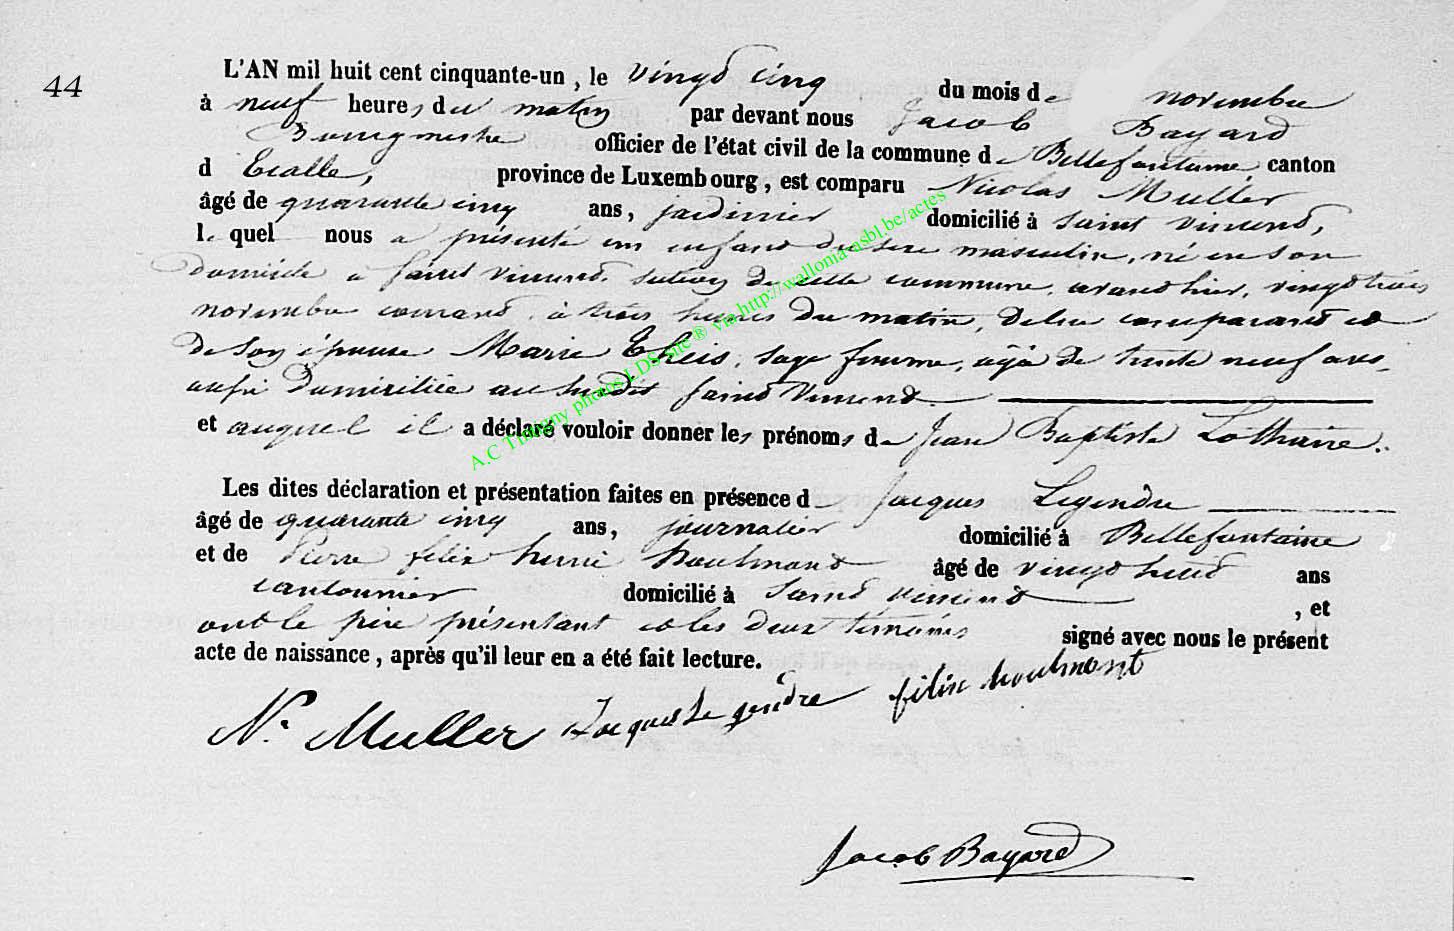 44
L'AN mil huit cent cinquante-un, le vingt cinq du mois de novembre
à neuf heures du matin par devant nous Jacob Bayard
Bourgmestre officier de l'état civil de la commune de Bellefontaine, canton
d'Etalle, province de Luxembourg, est comparu Nicolas Muller
âgé de quarante cinq ans, jardinier domicilié à Saint Vincent,
le quel nous a présenté un enfant du sexe masculin, né en son
domicile à Saint Vincent, section de cette commune, avant hier, vingt trois
novembre courant, à trois heures du matin, de lui comparant et
de son épouse Marie Theis, sage femme, âgé de trente neuf ans,
aussi domiciliée au susdit Saint Vincent
et auquel il a déclaré vouloir donner les prénoms de Jean Baptiste Lothaire.
Les dites déclaration et présentation faites en présence de Jacques Legendre
âgé de quarante cinq ans, journalier domicilié à Bellefontaine
et de Pierre félix henri houlmont âgé de vingt huit ans
cantonnier domicilié à Saint Vincent, et
ont le père présentant et les deux témoins signé avec nous le présent
acte de naissance, après qu'il leur en a été fait lecture.
N. Muller Jacques Le gendre félix houlmont
Jacob Bayard
A.C Tintigny photos LDS site ® via http://wallonia-asbl.be/actes